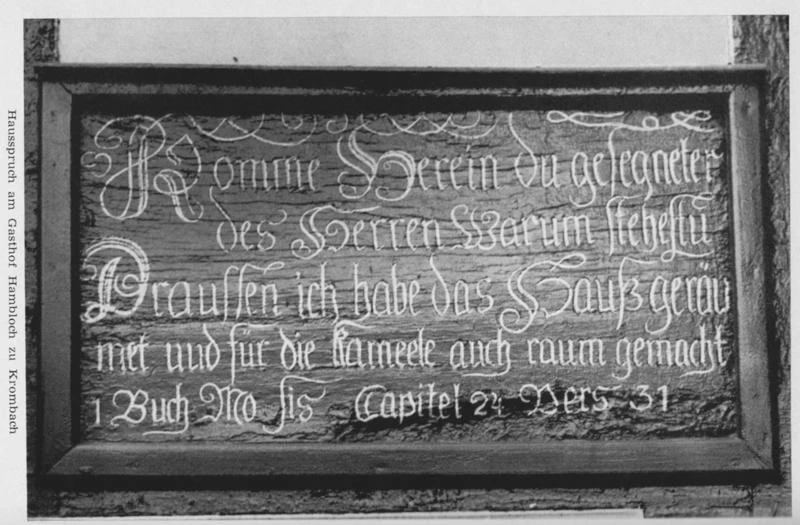 Komme Herein du gesegneter
des Herren Warum stehestu
Draussen ich habe das Hauß geräu
met und für die Kameele auch raum gemacht
1 Buch Mo sis Capitel 24 Vers 31
Hausspruch am Gasthof Hambloch zu Krombach